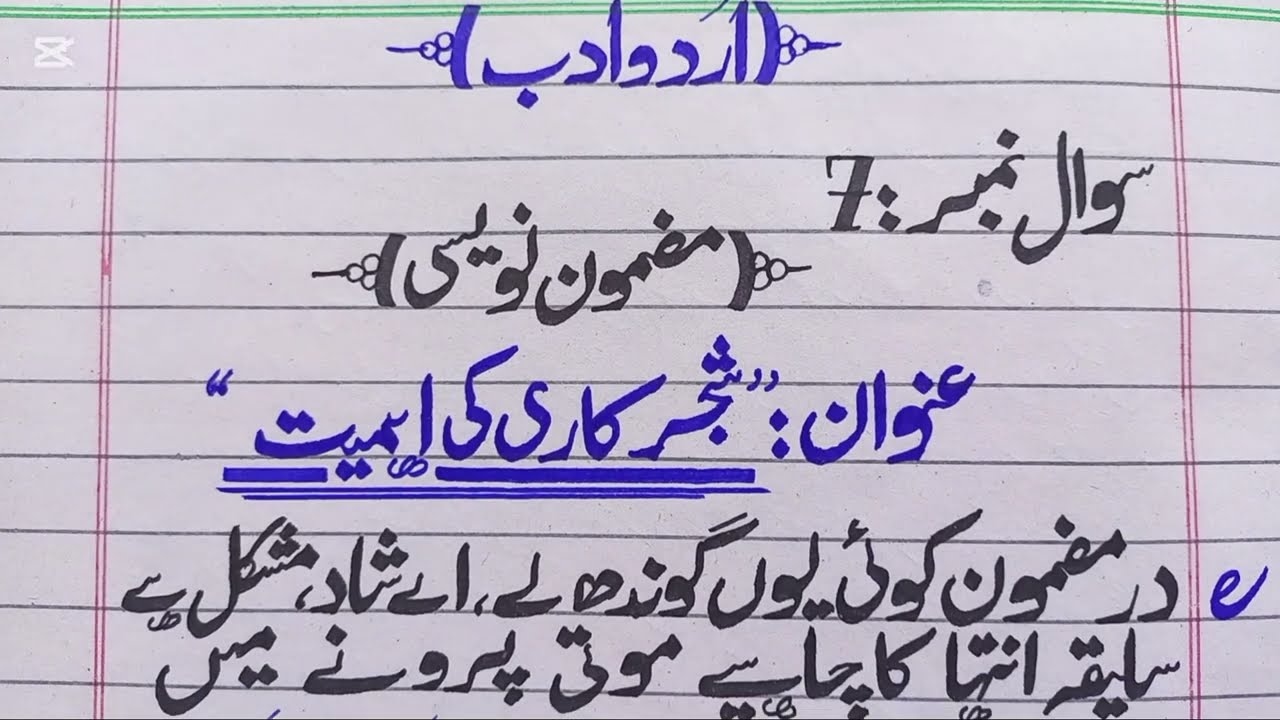 (اُردو ادب)
سوال نمبر : 7
(مضمون نویسی)
عنوان : ”شجر کاری کی اہمیت“
در مضمون کوئی یوں گوندھ لے، اے شاد، مشکل ہے
سلیقہ انتہا کا چاہیے موتی پرونے میں